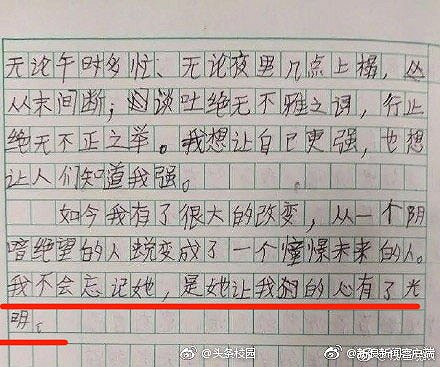 无论午时多忙、无论夜里几点上榻,
从未间断;谈吐绝无不雅之词,行止
绝无不正之举。我想让自己更强,也想
让人们知道我强。
如今我有了很大的改变,从一个阴
暗绝望的人蜕变成了一个憧憬未来的人。
我不会忘记她,是她让我的心有了光
明。
@头条校园 @新浪新闻客户端